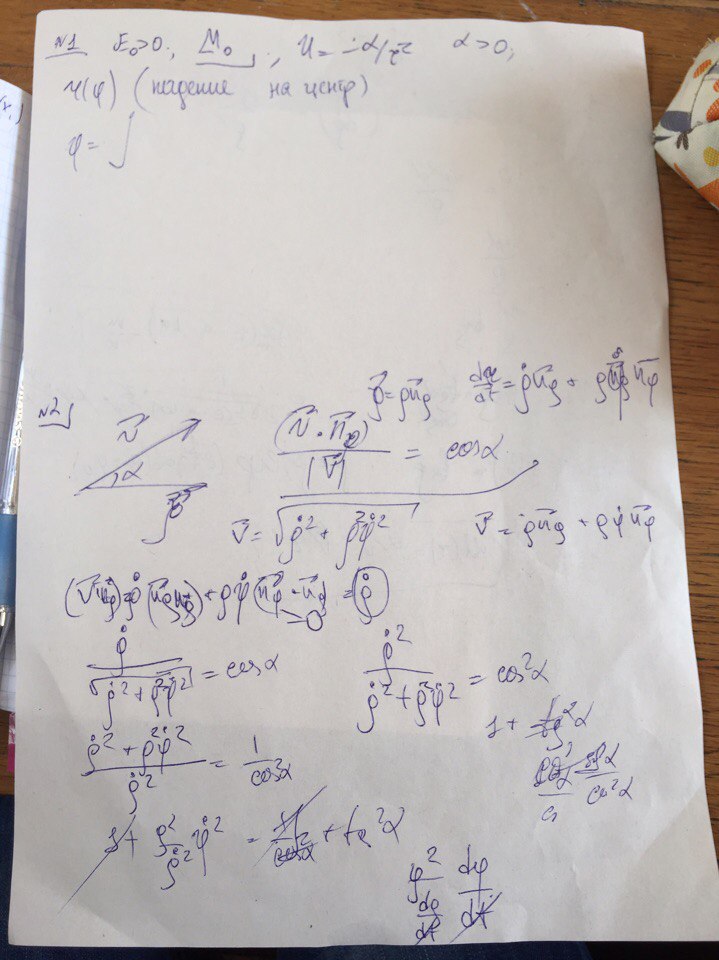 №1 E₀>0., M₀, U = -α/r² α>0,
r(φ) (падение на центр)
φ = ∫
ρ⃗ = ρn⃗ρ dr/dt = ρ̇n⃗ρ + ρφ̇n⃗φ
№2
v⃗ α ρ⃗
(v⃗·n⃗ρ)/|v⃗| = cosα
v⃗ = √(ρ̇² + ρ²φ̇²) v⃗ = ρ̇n⃗ρ + ρφ̇n⃗φ
(v⃗n⃗ρ) = ρ̇(n⃗ρn⃗ρ) + ρφ̇(n⃗φ·n⃗ρ) = ρ̇
=0
ρ̇/√(ρ̇² + ρ²φ̇²) = cosα ρ̇²/(ρ̇² + ρ²φ̇²) = cos²α
1 + tg²α
(ρ̇² + ρ²φ̇²)/ρ̇² = 1/cos²α
1 + ρ²/ρ̇² φ̇² = 1 + tg²α
ρ²/(dρ/dt) dφ/dt